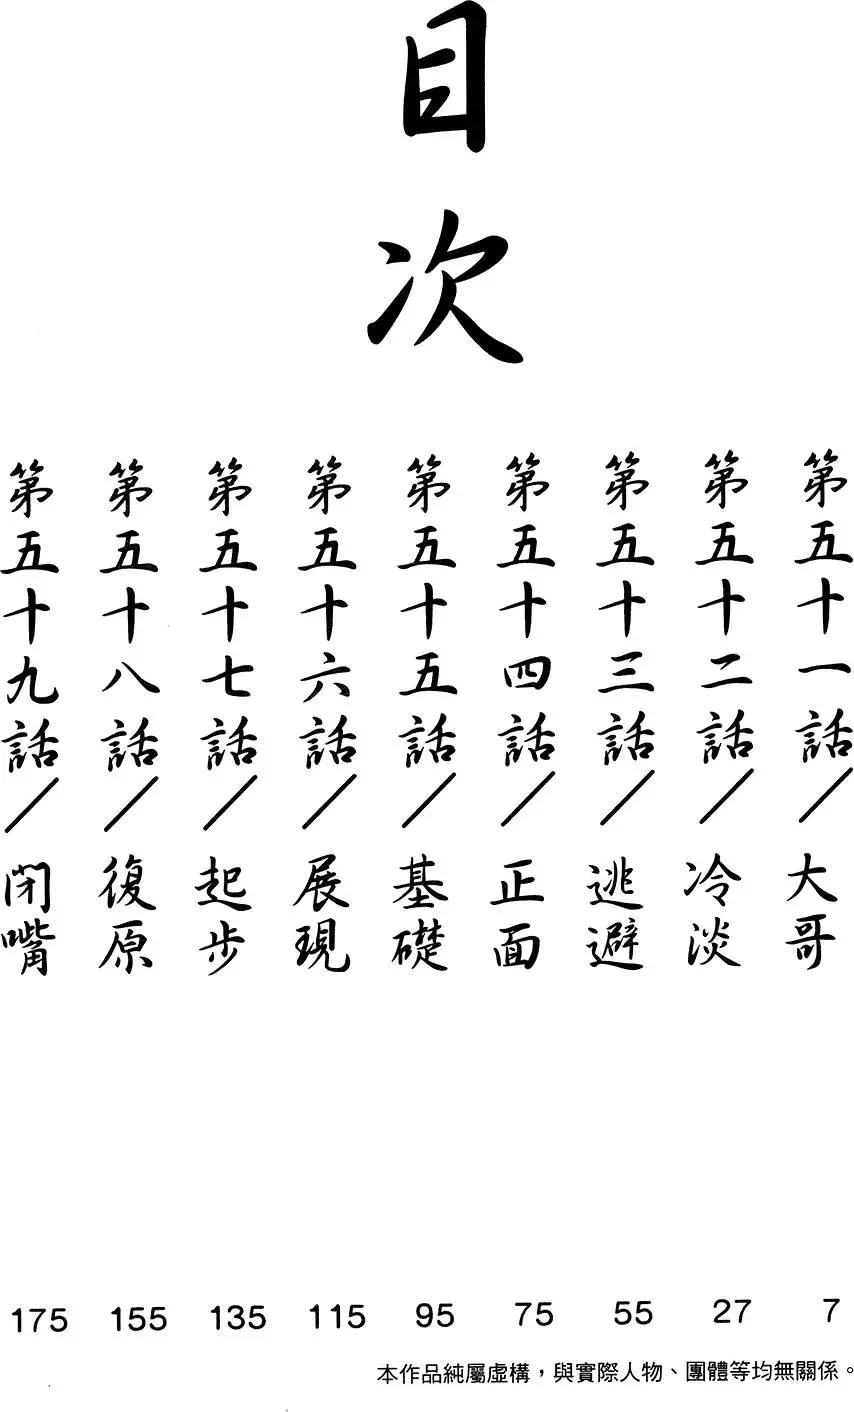 目次
第五十一話／大哥 7
第五十二話／冷淡 27
第五十三話／逃避 55
第五十四話／正面 75
第五十五話／基礎 95
第五十六話／展現 115
第五十七話／起步 135
第五十八話／復原 155
第五十九話／閉嘴 175
本作品純屬虛構，與實際人物、團體等均無關係。